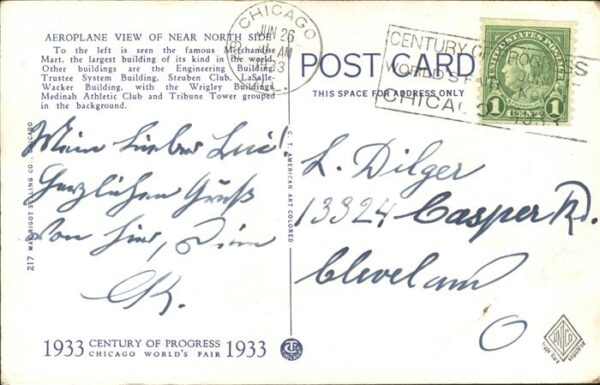 AEROPLANE VIEW OF NEAR NORTH SIDE
To the left is seen the famous Merchandise
Mart, the largest building of its kind in the world.
Other buildings are the Engineering Building,
Trustee System Building, Steuben Club, LaSalle-
Wacker Building, with the Wrigley Building,
Medinah Athletic Club and Tribune Tower grouped
in the background.
CHICAGO
JUN 26
AM
POST CARD
THIS SPACE FOR ADDRESS ONLY
CENTURY OF PROGRESS
WORLD'S FAIR
CHICAGO
UNITED STATES POSTAGE
1 CENT 1
Mein lieber
Herzlichen Gruß
von hier, Dein
L. Dilger
13324 Casper Rd.
Cleveland
O
217 MAX RIGOT SELLING CO., CHICAGO
C. T. AMERICAN ART COLORED
1933 CENTURY OF PROGRESS 1933
CHICAGO WORLD'S FAIR